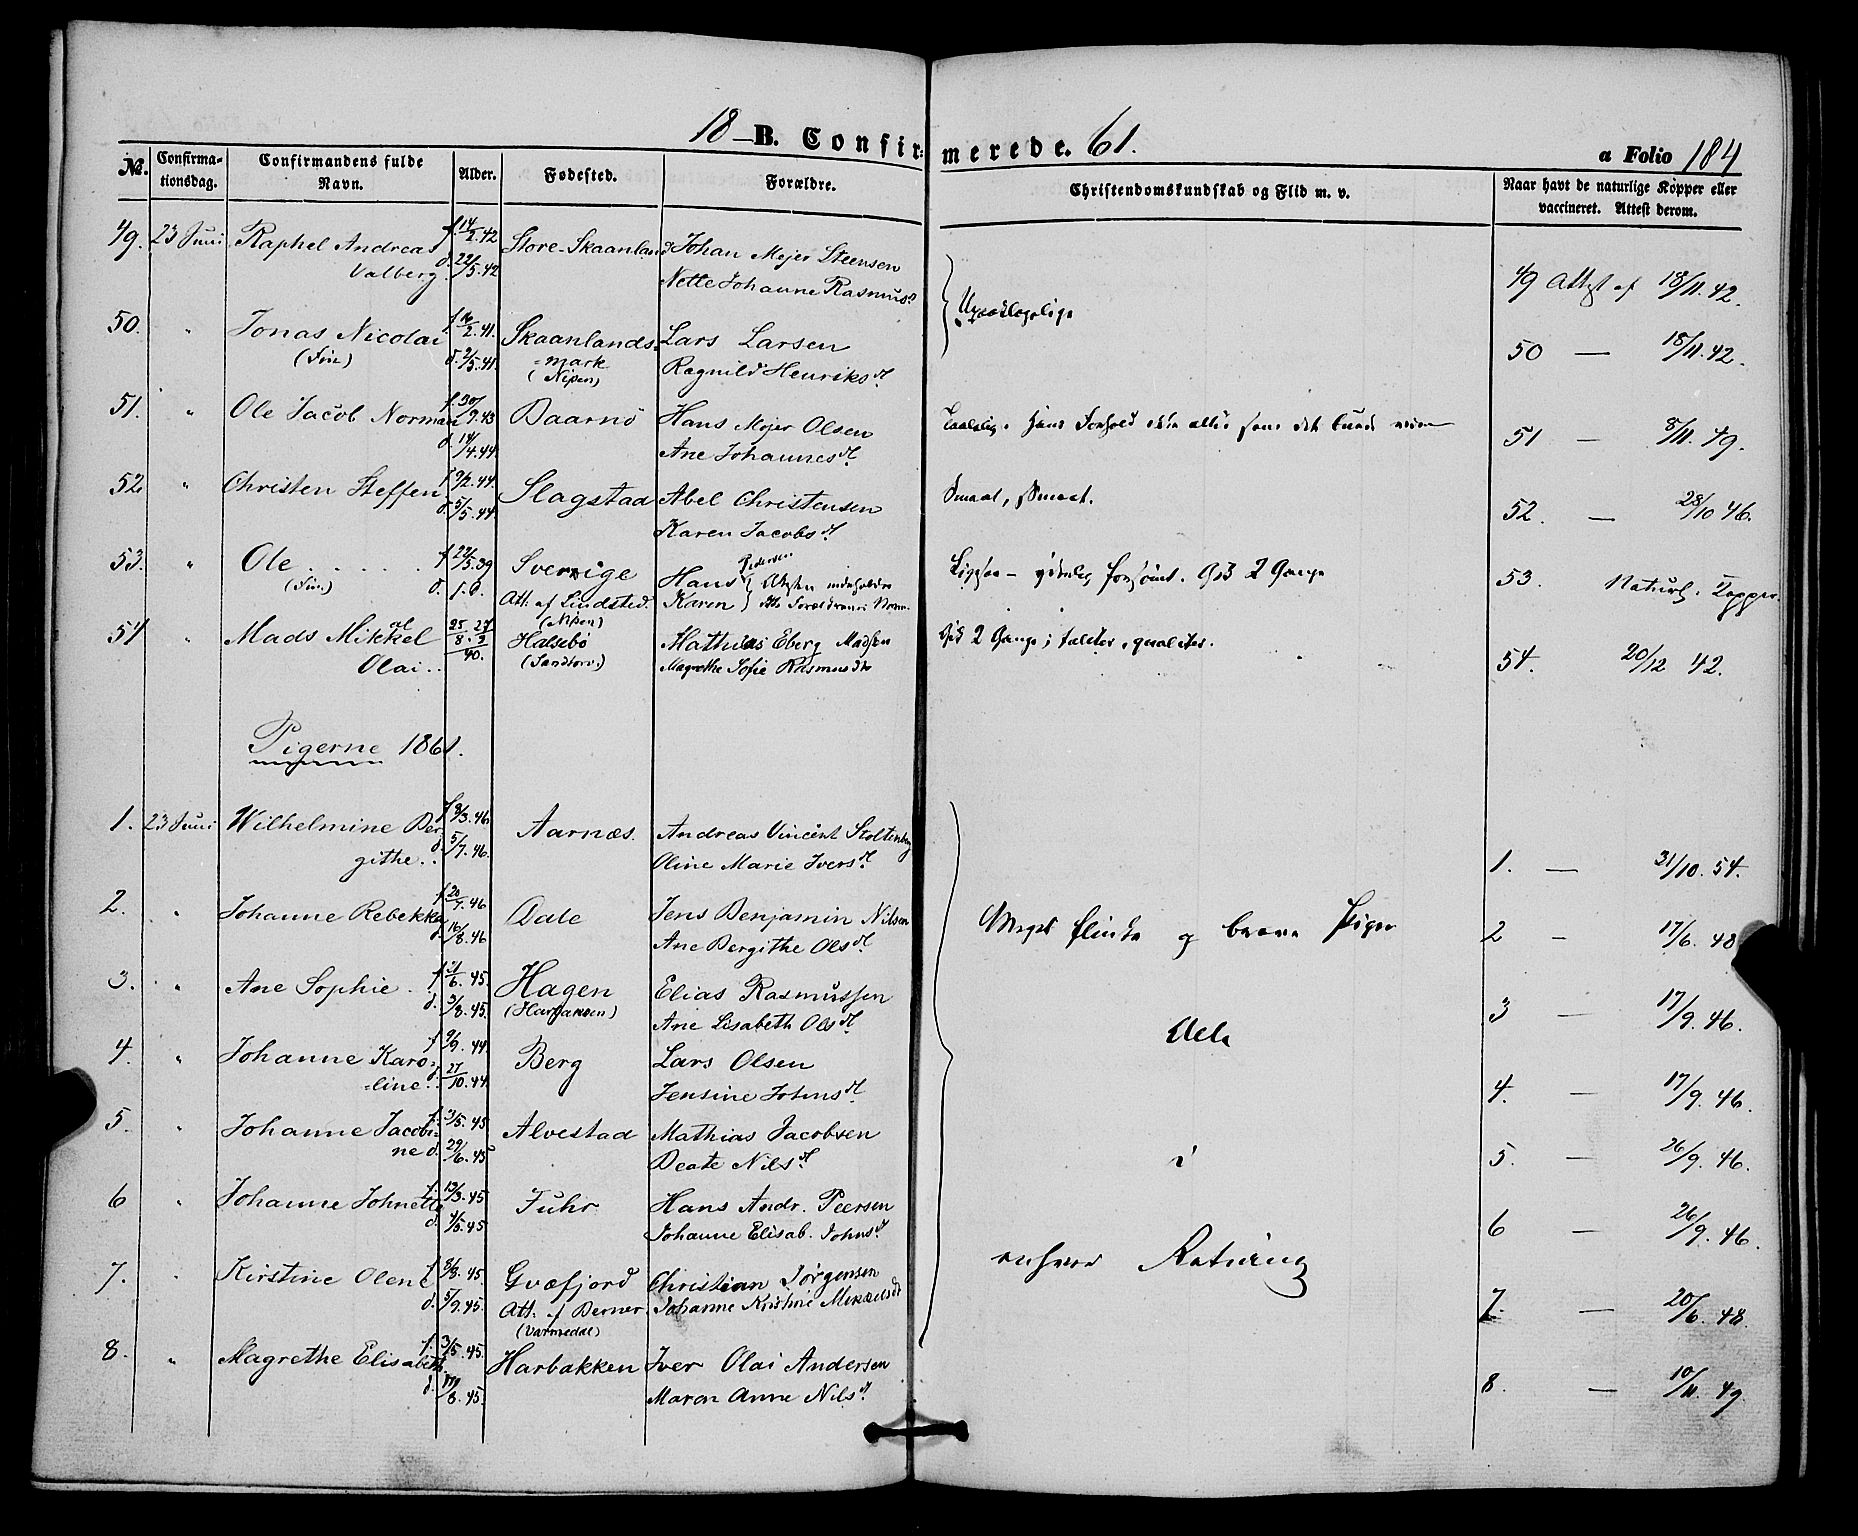 18 — B. Confirmerede. 61.
a Folio 184
No. Confirmationsdag. Confirmandens fulde Navn. Alder. Fødested. Forældre. Christendomskundskab og Flid m. v. Naar havt de naturlige Kopper eller vaccineret. Attest derom.
49. 23 Juni Raphel Andreas f. 14/2.42 Store-Skaanland Johan Mejer Steensen
Valberg. d. 22/5.42 Nette Johanne Rasmusd. 49 Attest af 18/11.42.
50. " Jonas Nicolai f. 16/2.41. Skaanlands- Lars Larsen
(Fin) d. 2/5.41. =mark Ragnild Henriksd. 50 — 18/11.42.
(Nipen)
51. " Ole Jacob Norman f. 30/9.43 Baarnö Hans Mejer Olsen
d. 14/4.44. Ane Johannesd. 51 — 8/11.49.
52. " Christen Steffen f. 9/2.44. Slagstad Abel Christensen Smaat, smaat.
d. 5/5.44. Karen Jacobsd. 52. — 28/10 46.
53. " Ole . . . . . f. 22/5.39 Sverrige Hans Pedersen
(Fin) d. 1.6. Att. af Lindsted. Karen 53. Naturl. Kopper.
(Nipen)
54 " Mads Mikkel 25/8. 27/2 Halsebö Mathias Eberg Madsen
Olai.. 40. (Sandtorv.) Magrethe Sofie Rasmusdtr 54. 20/12 42.
Pigerne 1861.
1. 23 Juni Wilhelmine Ber- f. 9/3.46. Aarnæs. Andreas Vincent Stoltenberg
githe.. d. 5/7.46. Oline Marie Iversd. 1. — 31/10.54.
2. " Johanne Rebekka f. 20/7.46 Dale Jens Benjamin Nilsen Meget flinke og brave Piger
d. 16/8.46 Ane Bergithe Olsd. 2 — 17/6.48
3. " Ane Sophie . f. 21/6.45. Hagen Elias Rasmussen
d. 3/8.45. Ane Lisabeth Olsd. 3 — 17/9.46.
4. " Johanne Karo- f. 9/9.44. Berg Lars Olsen
=line.. d. 27/10.44. Jensine Johnsd. 4. — 17/9.46.
5. " Johanne Jacobi- f. 3/5.45 Alvestad Mathias Jacobsen
ne d. 29/6.45 Beate Nilsd. i 5. — 26/9.46.
6 " Johanne Johnette f. 13/3.45 Fuhr Hans Andr. Peersen
d. 4/5.45 Johanne Elisab. Johnsd. 6 — 26/9.46.
7. " Kirstine Olene f. 3/8.45. Qvæfjord Christian Jörgensen enhver Retning
d. 5/9.45. Att. af Berner. Johanne Kristine 7. — 20/6.48.
8. " Magrethe Elisabeth f. 3/5.45. Harbakken Iver Olai Andersen
d. 8.45. Maren Anne Nilsd. 8. — 10/11.49.